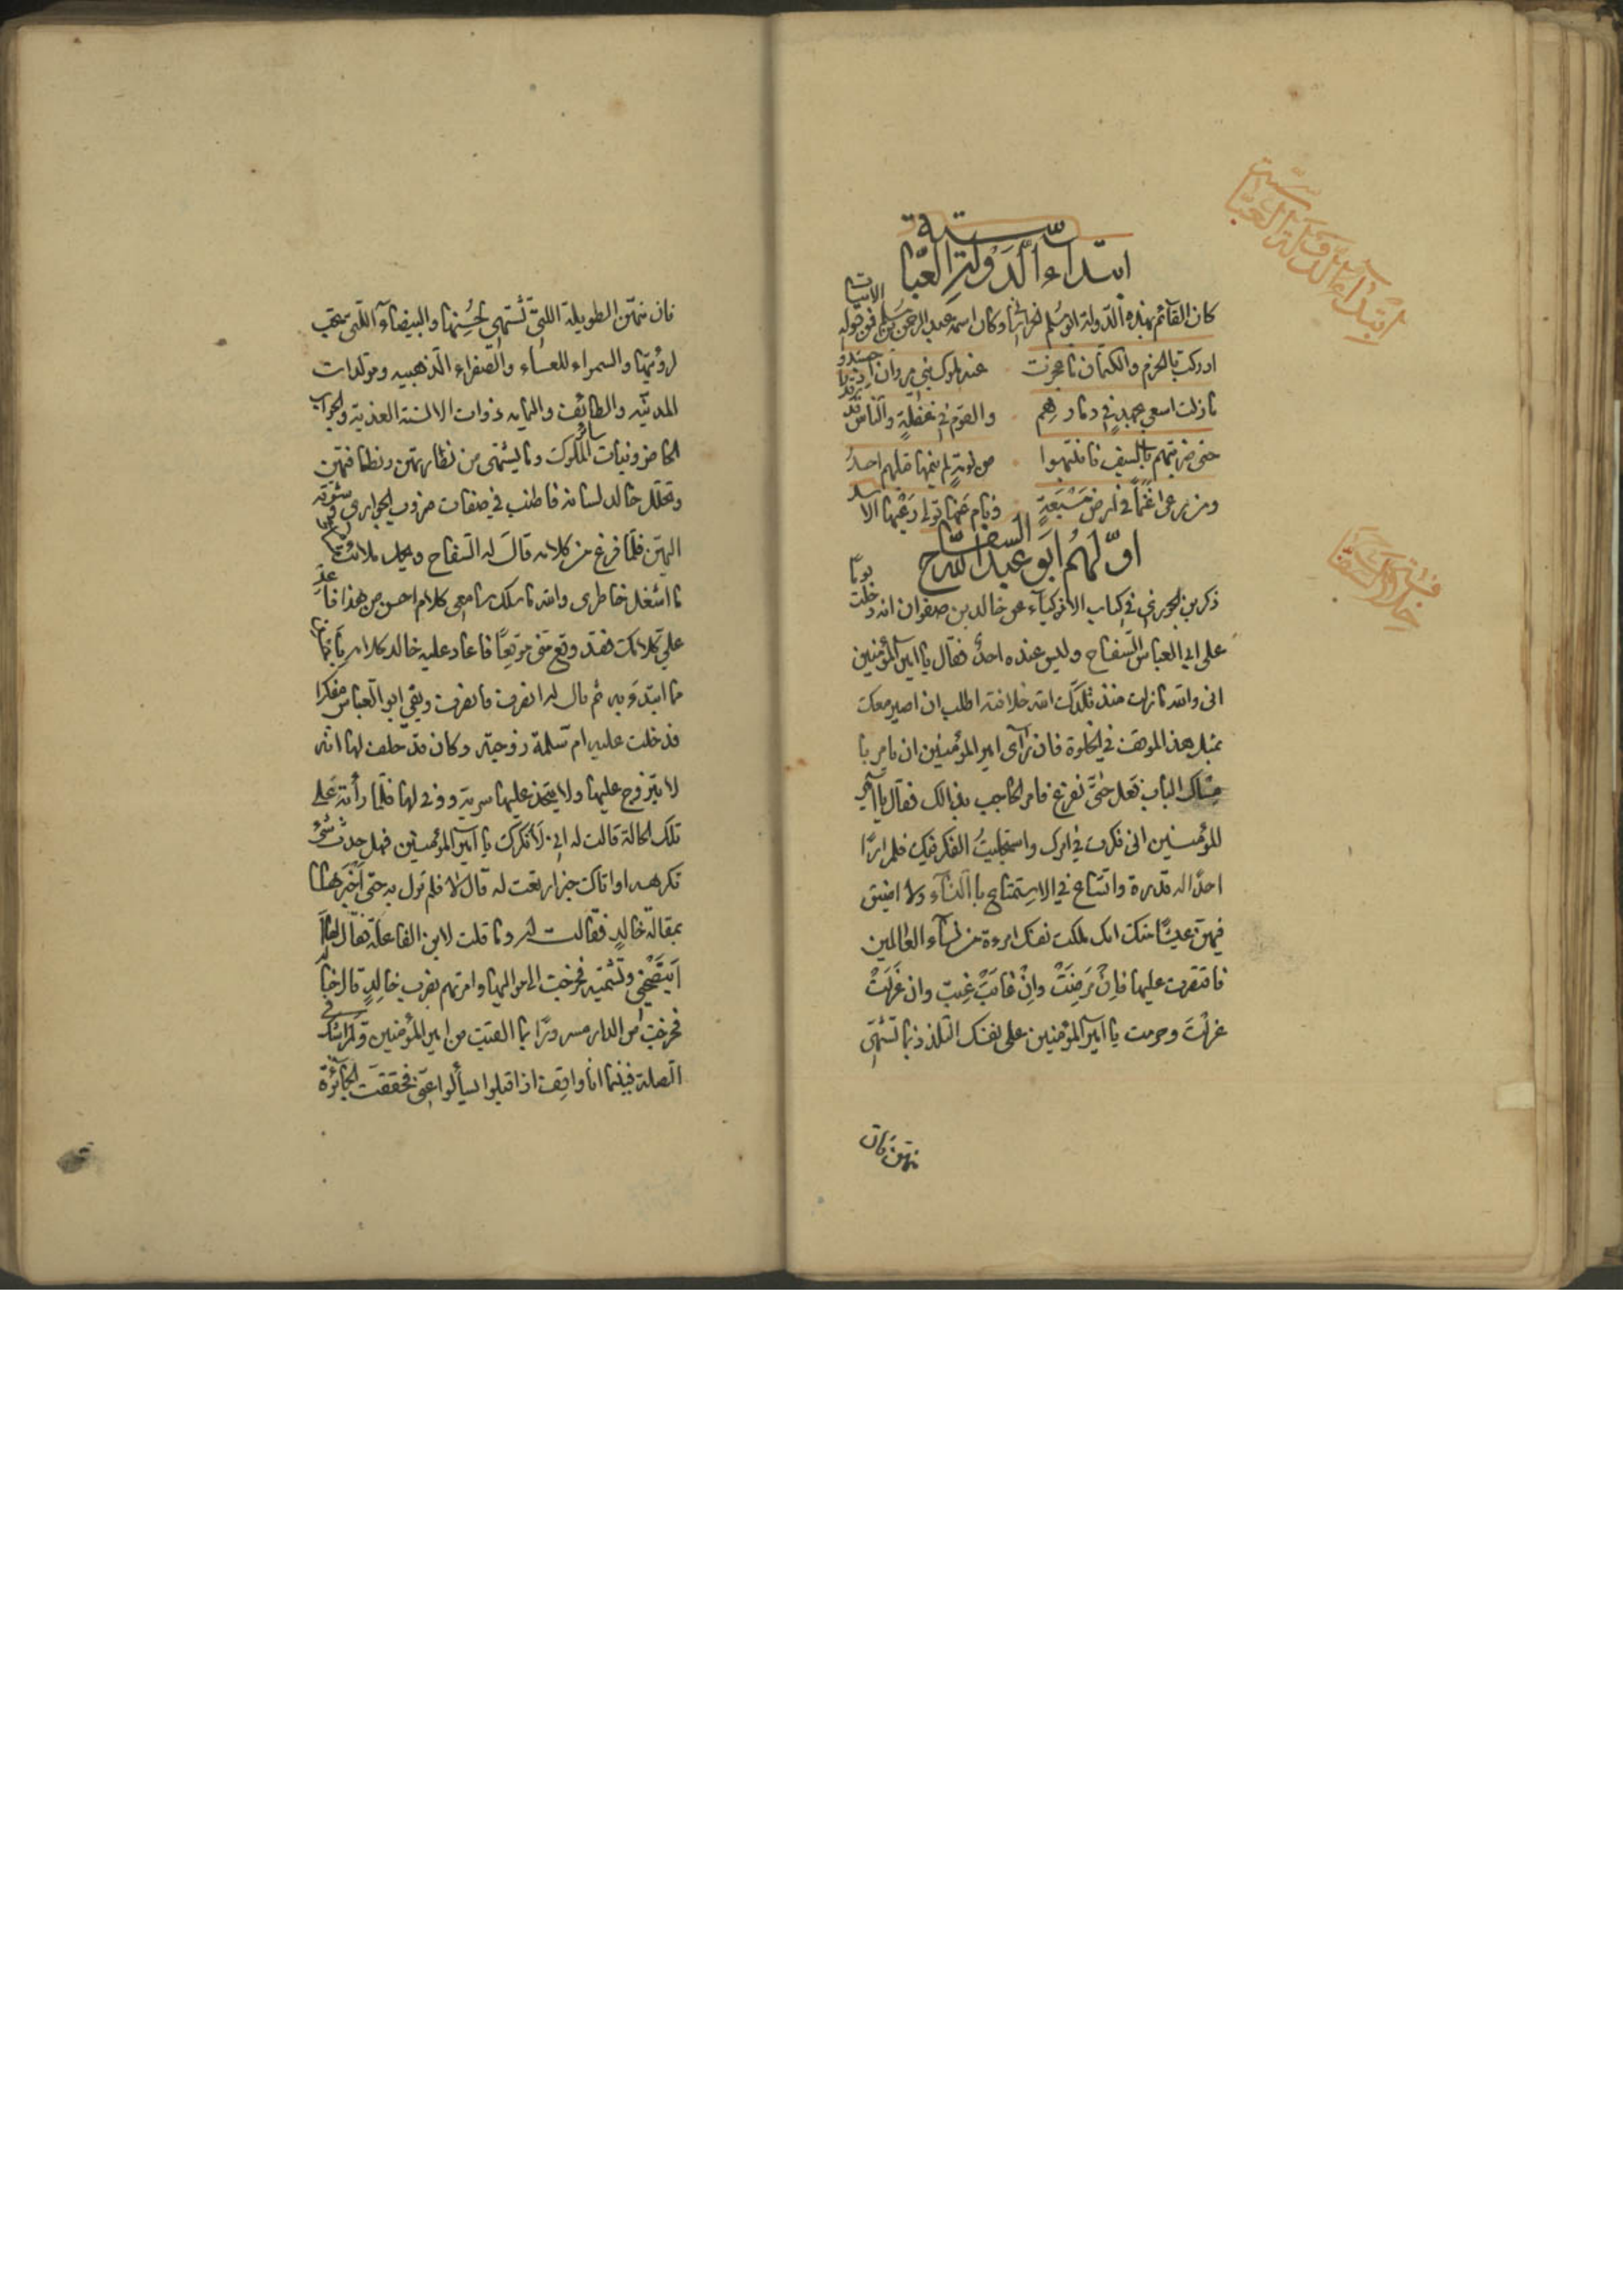 ابتداء الدولة العباسية
ابتداء الدولة العباسية
كان القآئم بهذه الدولة ابو مسلم الخراسانى وكان اسمه عبد الرحمن بن مسلم فمن قوله الابيات
ادركت بالحزم والكتمان ما عجزت عنه ملوك بني مروان اذ حشدوا
ما زلت اسعى بجهدي في دمارهم والقوم في غفلةٍ والناس قد رقدوا
حتى ضربتهم بالسيف فانتبهوا من نومةٍ لم ينمها قبلهم احدُ
ومن رعى غنماً في ارض مَسْبَعَةٍ ونام عنها تولى رَعْيَها الاسد
اوّلهُم ابو عبد الله السفاح
ذكر بن الجوزى في كتاب الاذكيآء عن خالد بن صفوان انه دخلت يوماً
على ابي العباس السّفاح وليس عنده احدٌ فقال يا امير المؤمنين
انى والله ما زلت منذ قلدك الله خلافته اطلب ان اصير معك
بمثل هذ الموقف في الخلوة فان رآى امير المؤمنين ان يامر با
مساك الباب فعل حتّى نفرغ فامر الحاجب بذالك فقال يا امير
المؤمنين انى فكرت في امرك واستجلبتُ الفكر فيك فلم ارَا
احدًا له قدرة واتساع في الاستمتاع باالنسآء ولا اضيق
فيهنّ عيشًا منك انك ملكت نفسك امرءة من نسآء العالمين
فاقتصرت عليها فاِنْ مَرِضَتْ مرضت واِنْ غابَتْ غبت وان عَزَلَتْ
عزلْتَ وحرمت يا امير المؤمنين على نفسك التلذذ بما تَشتَهى
منهن فان
فان منهّن الطويلة اللتى تُشتهى لحُسِنها والبيضآء اللتى تحب
لرؤيتها والسمراء للعساء والصّفراء الذهبيه ومولدات
المدنيّه والطائف واليمامه ذوات الالسنة العذبة والجواب
الحاضر وبنات سائر الملوك وما يشتهى من نظارتهن ونظافتهن
وتخلل خالد لسانه فاطنب في صفات ضروب الجوارى وشوقه
اليهّن فلّما فرغ من كلامه قال له السّفاح ويحك ملات
ما اشغل خاطرى والله ما سلك مسامعى كلام احسن من هذا فاعد
على كلامك فقد وقع منى موقعًا فاعاد عليه خالد كلامه
مما ابتدء به ثم قال له انصرف فانصرف وبقى ابو العباس مفكرا
فدخلت عليه ام سّلمة زوجته وكان قد حلف لها انه
لا يتزوج عليها ولا يتخذ عليها سرية ووفى لها فلّما رأته على
تلك الحالة قالت له انى لَأنكرك يا امير المؤمنين فهل حدث شئٌ
تكرهه او اتاك خبر ارتعت له قال لا فلم تزل به حتى اخبرها
بمقالة خالدٍ فقالت له وما قلت لابن الفاعلة فقال لها
اينصحنى وتشتميه فخرجت الى مواليها وامرتهم بضرب خالدٍ قال خالد
فخرجت من الدار مسرورًا بما القيت من امير المؤمنين ولم اشك فى
الصلة فبينما انا واقف اذ اقبلوا يسألوا عنى فحققت الجآئزة